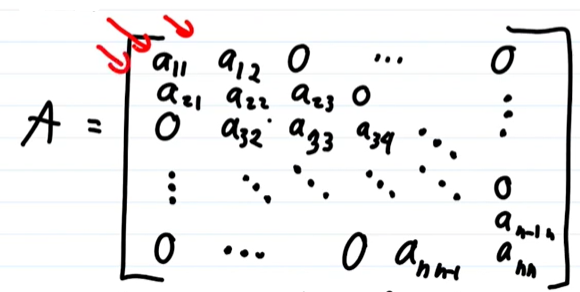 a₁₁ a₁₂ 0 ⋯ 0
a₂₁ a₂₂ a₂₃ 0 ⋮
A = 0 a₃₂ a₃₃ a₃₄ ⋱
⋮ ⋱ ⋱ ⋱ ⋱ 0
aₙ₋₁ₙ
0 ⋯ 0 aₙₙ₋₁ aₙₙ